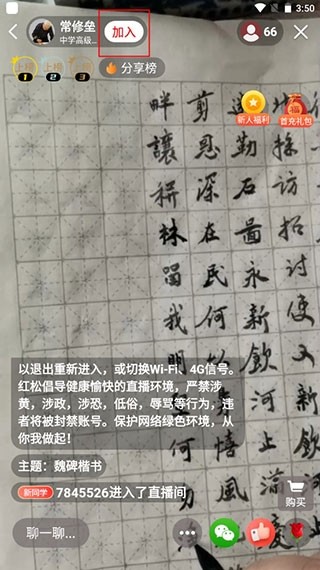 3:50
常修垒
中学高级...
加入
66
上榜 上榜 上榜
1 2 3
分享榜
新人福利
首充礼包
以退出重新进入，或切换Wi-Fi、4G信号。
红松倡导健康愉快的直播环境，严禁涉
黄，涉政，涉恐，低俗，辱骂等行为，违
者将被封禁账号。保护网络绿色环境，从
你我做起！
主题：魏碑楷书
新同学 7845526进入了直播间
购买
聊一聊...
招討便又
採訪
永新飲河止
勤石圖
剪恩深在民何
畔讓耕林
我明